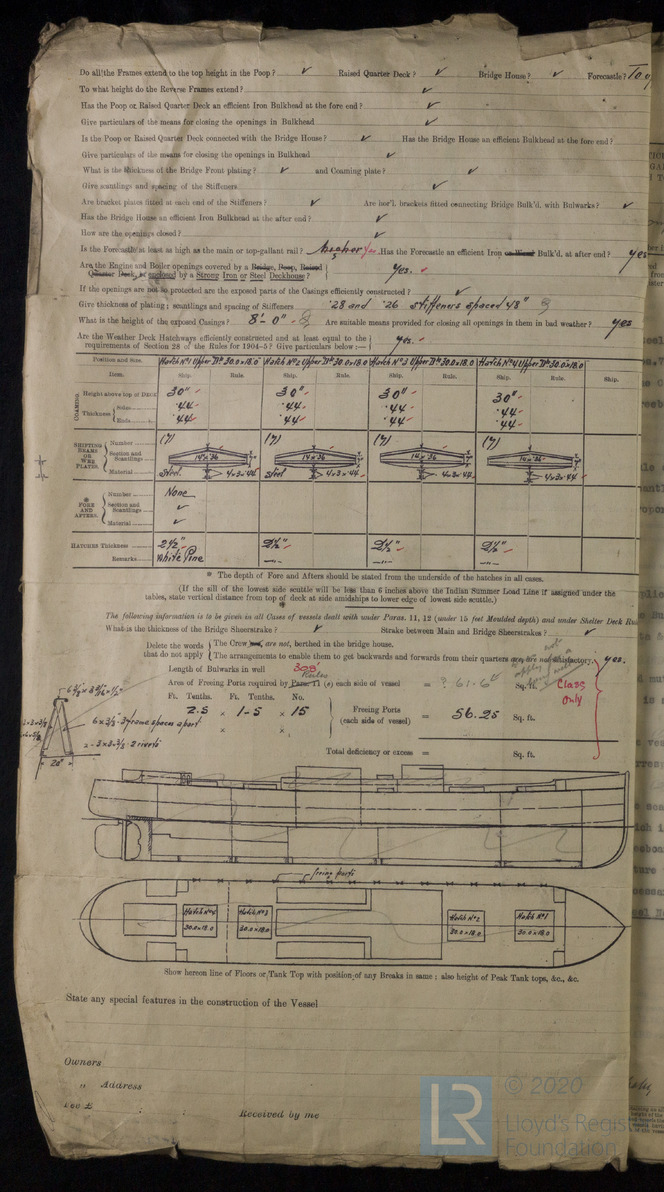 Do all the Frames extend to the top height in the Poop? ✓ Raised Quarter Deck? ✓ Bridge House? ✓ Forecastle?
To what height do the Reverse Frames extend? ✓
Has the Poop or Raised Quarter Deck an efficient Iron Bulkhead at the fore end? ✓
Give particulars of the means for closing the openings in Bulkhead ✓
Is the Poop or Raised Quarter Deck connected with the Bridge House? ✓ Has the Bridge House an efficient Bulkhead at the fore end?
Give particulars of the means for closing the openings in Bulkhead ✓
What is the thickness of the Bridge Front plating? ✓ and Coaming plate? ✓
Give scantlings and spacing of the Stiffeners ✓
Are bracket plates fitted at each end of the Stiffeners? ✓ Are hor'l. brackets fitted connecting Bridge Bulk'd. with Bulwarks? ✓
Has the Bridge House an efficient Iron Bulkhead at the after end? ✓
How are the openings closed? ✓
Is the Forecastle at least as high as the main or top-gallant rail? higher yes Has the Forecastle an efficient Iron or Wood Bulkd. at after end? yes
Are the Engine and Boiler openings covered by a Bridge, Poop, Raised
Quarter Deck, or enclosed by a Strong Iron or Steel Deckhouse? yes. ✓
If the openings are not so protected are the exposed parts of the Casings efficiently constructed? ✓
Give thickness of plating; scantlings and spacing of Stiffeners ·28 and ·26 stiffeners spaced 48"
What is the height of the exposed Casings? 8'-0" Are suitable means provided for closing all openings in them in bad weather? yes
Are the Weather Deck Hatchways efficiently constructed and at least equal to the
requirements of Section 28 of the Rules for 1904-5? Give particulars below:— yes.
Position and Size. Hatch No 1 Upper Dk 30.0x18.0 Hatch No 2 Upper Dk 30.0x18.0 Hatch No 3 Upper Dk 30.0x18.0 Hatch No 4 Upper Dk 30.0x18.0
Item. Ship. Rule. Ship. Rule. Ship. Rule. Ship. Rule. Ship.
COAMING Height above top of DECK 30" 30" 30" 30"
Thickness Sides ·44 ·44 ·44 ·44
Ends ·44 ·44 ·44 ·44
SHIFTING BEAMS OR WEB PLATES. Number (7) (7) (7) (7)
Section and Scantlings 14x·36 14x·36 14x·36 14x·36
Material Steel 4x3x·44 Steel 4x3x·44 4x3x·44 4x3x·44
FORE AND AFTERS. Number None
Section and Scantlings ✓
Material ✓
HATCHES Thickness 2½" 2½" 2½" 2½"
Remarks White Pine
* The depth of Fore and Afters should be stated from the underside of the hatches in all cases.
(If the sill of the lowest side scuttle will be less than 6 inches above the Indian Summer Load Line if assigned under the
tables, state vertical distance from top of deck at side amidships to lower edge of lowest side scuttle.)
The following information is to be given in all Cases of vessels dealt with under Paras. 11, 12 (under 15 feet Moulded depth) and under Shelter Deck
What is the thickness of the Bridge Sheerstrake? ✓ Strake between Main and Bridge Sheerstrakes? ✓
Delete the words The Crew are, are not, berthed in the bridge house.
that do not apply The arrangements to enable them to get backwards and forwards from their quarters are, are not satisfactory. yes.
Length of Bulwarks in well 308'
Area of Freeing Ports required by Para. 11 (e) each side of vessel Rules = ? 61·6 Sq. ft. Class only
Ft. Tenths. Ft. Tenths. No.
2.5 × 1-5 × 15 Freeing Ports
× × (each side of vessel) = 56.25 Sq. ft.
Total deficiency or excess = Sq. ft.
6 x 3½ frame spaces apart
2 rivets
20"
freeing ports
Hatch No 4 Hatch No 3 Hatch No 2 Hatch No 1
30.0x18.0 30.0x18.0 30.0x18.0 30.0x18.0
Show hereon line of Floors or Tank Top with position of any Breaks in same; also height of Peak Tank tops, &c., &c.
State any special features in the construction of the Vessel
Owners
" Address
Fee £
Received by me
LR © 2020
Lloyd's Register
Foundation